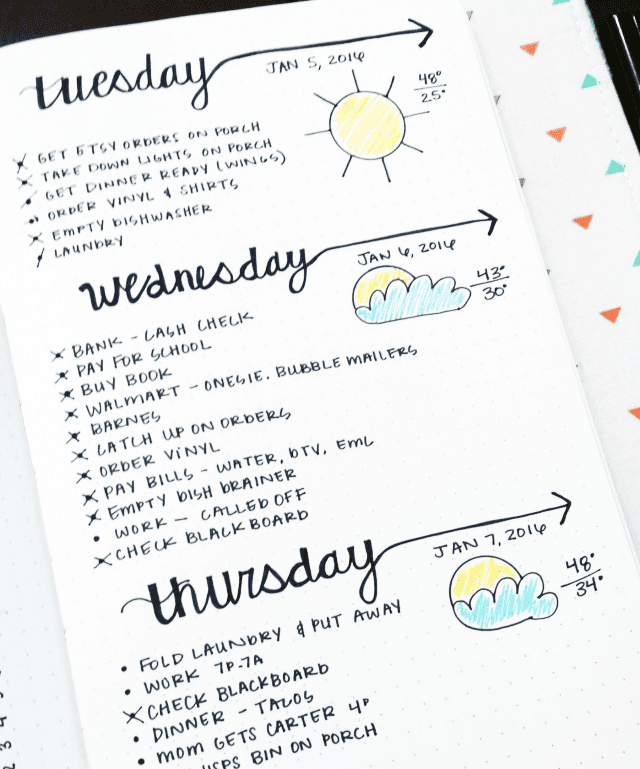 tuesday
JAN 5, 2016
48°
25°
× GET ETSY ORDERS ON PORCH
× TAKE DOWN LIGHTS ON PORCH
• GET DINNER READY (WINGS)
• ORDER VINYL & SHIRTS
× EMPTY DISHWASHER
/ LAUNDRY
wednesday
JAN 6, 2016
43°
30°
× BANK - CASH CHECK
× PAY FOR SCHOOL
× BUY BOOK
× WALMART - ONESIE, BUBBLE MAILERS
× BARNES
× CATCH UP ON ORDERS
× ORDER VINYL
× PAY BILLS - WATER, DTV, EML
× EMPTY DISH DRAINER
• WORK - CALLED OFF
× CHECK BLACKBOARD
thursday
JAN 7, 2016
48°
34°
• FOLD LAUNDRY & PUT AWAY
• WORK 7P-7A
× CHECK BLACKBOARD
• DINNER - TACOS
• MOM GETS CARTER 4P
USPS BIN ON PORCH